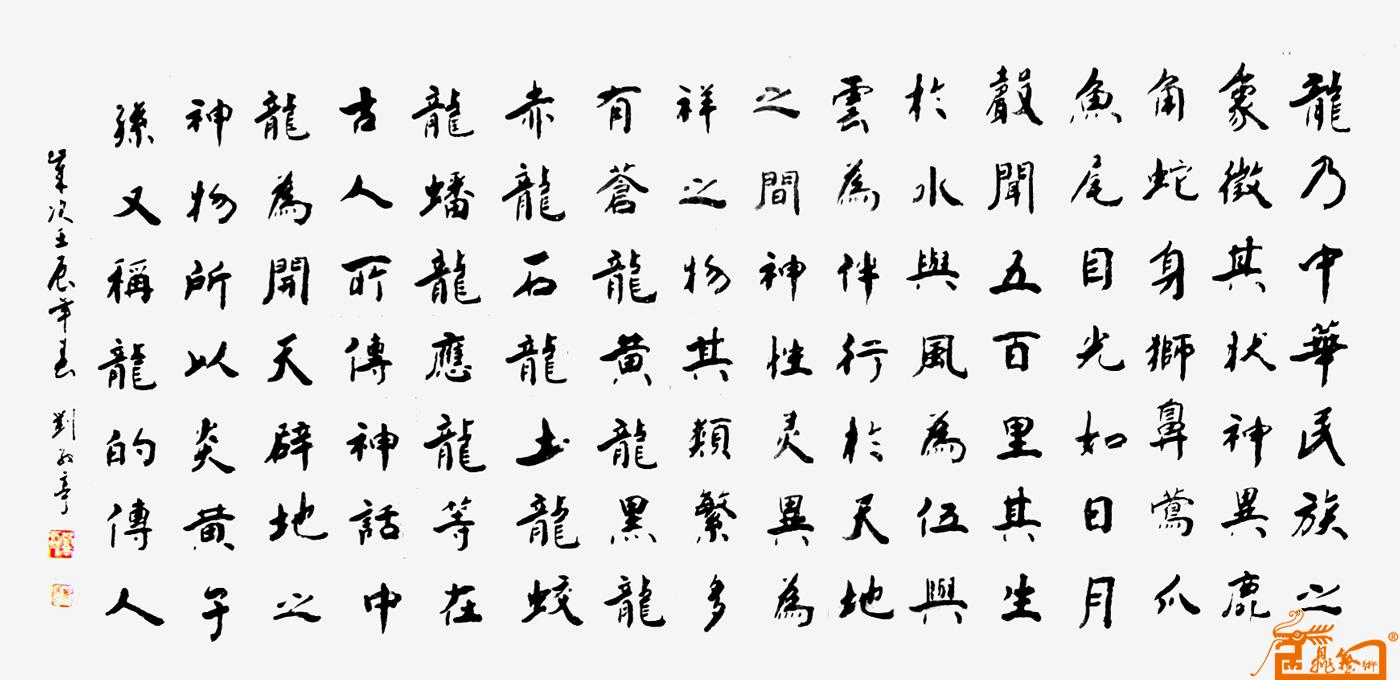 龍乃中華民族之
象徵其狀神異鹿
角蛇身獅鼻鶯爪
魚尾目光如日月
聲聞五百里其生
於水與風為伍與
雲為伴行於天地
之間神性灵異為
祥之物其類繁多
有蒼龍黄龍黑龍
赤龍石龍土龍蛟
龍蟠龍應龍等在
古人所傳神話中
龍為開天辟地之
神物所以炎黄子
孫又稱龍的傳人
歲次壬辰年春 劉亭